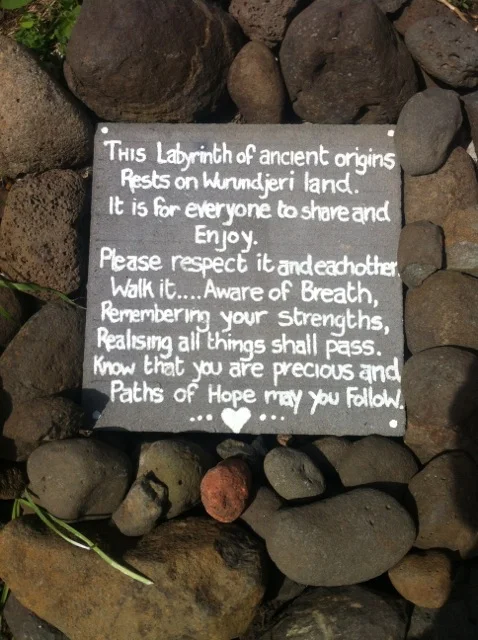 This Labyrinth of ancient origins
Rests on Wurundjeri land.
It is for everyone to share and
Enjoy.
Please respect it and eachother.
Walk it....Aware of Breath,
Remembering your strengths,
Realising all things shall pass.
Know that you are precious and
Paths of Hope may you Follow.
...♥...